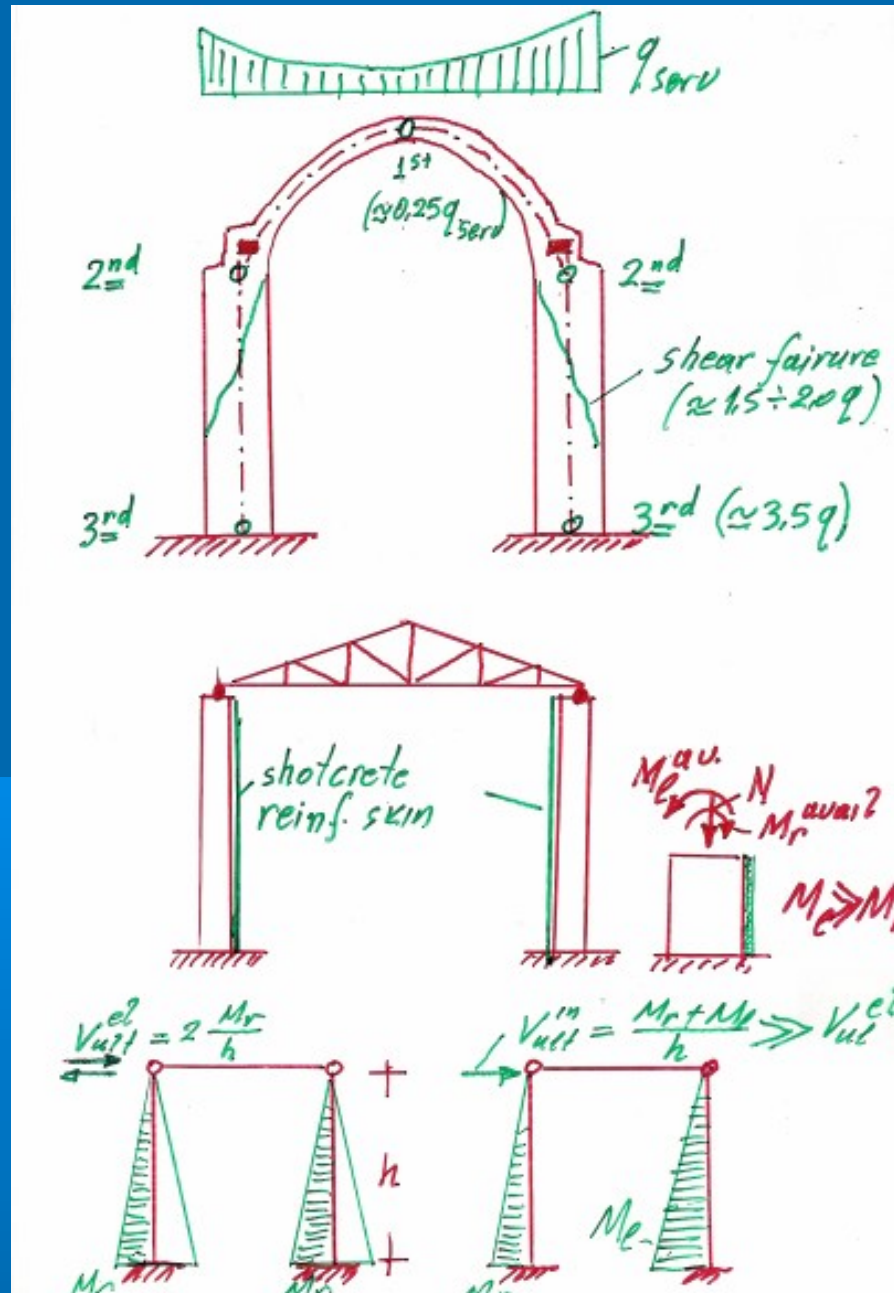 q serv
1st
(≈0,25q serv)
2nd
2nd
shear fairure
(≈1,5÷2,0q)
3rd
3rd (≈3,5q)
shotcrete
reinf. skin
M_ℓ^av.
N
M_r^avail
M_ℓ≫M
V_ult^el = 2 M_r/h
V_ult^in = (M_r+M_ℓ)/h ≫ V_ul^el
h
M_ℓ